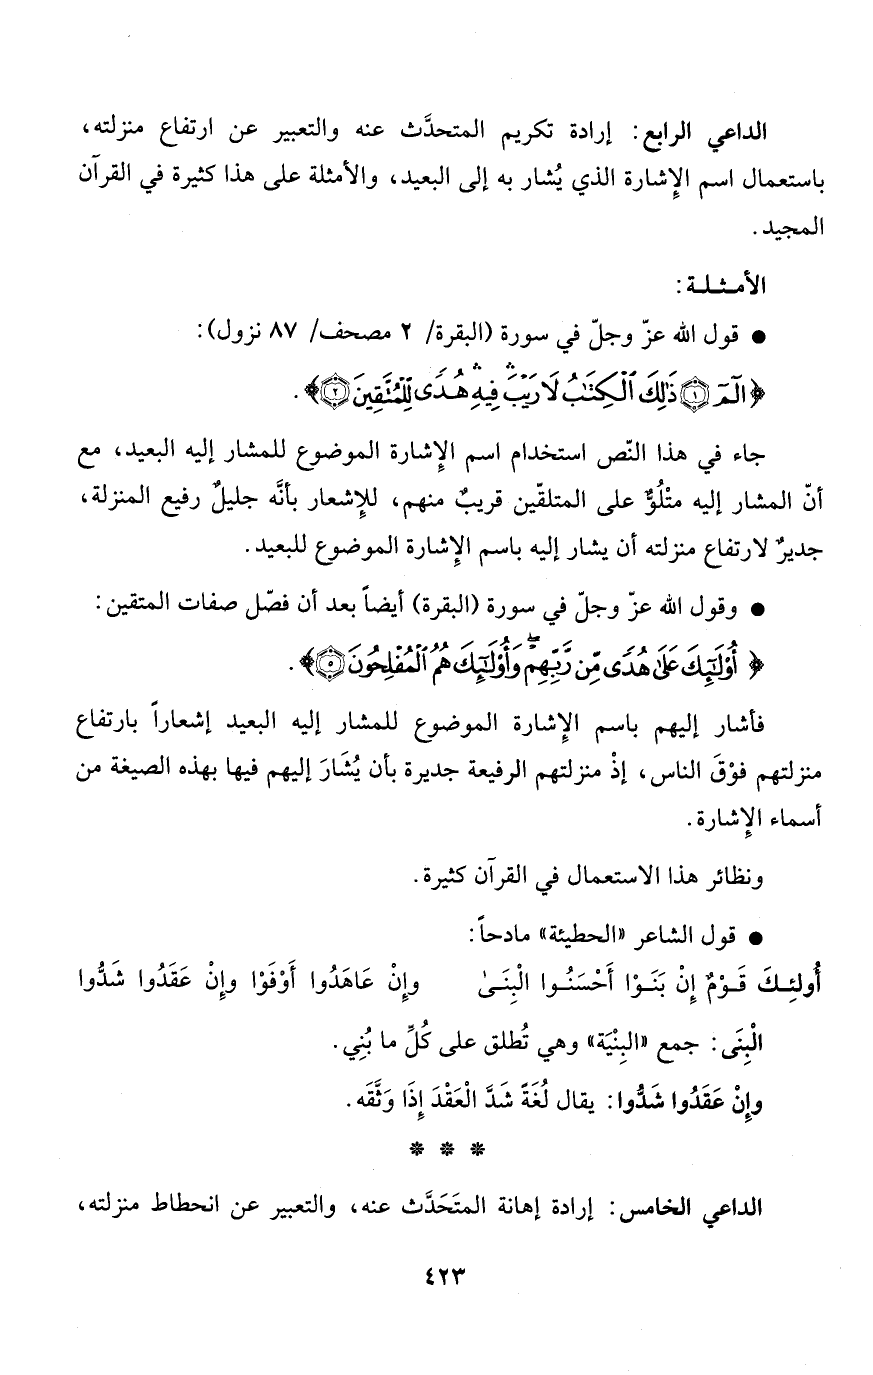 الداعي الرابع: إرادة تكريم المتحدَّث عنه والتعبير عن ارتفاع منزلته،
باستعمال اسم الإِشارة الذي يُشار به إلى البعيد، والأمثلة على هذا كثيرة في القرآن
المجيد.
الأمـثـلـة:
● قول الله عزّ وجلّ في سورة (البقرة/ ٢ مصحف/ ٨٧ نزول):
﴿الٓمٓ ١ ذَٰلِكَ ٱلْكِتَٰبُ لَا رَيْبَ ۛ فِيهِ ۛ هُدًى لِّلْمُتَّقِينَ ٢﴾.
جاء في هذا النّص استخدام اسم الإِشارة الموضوع للمشار إليه البعيد، مع
أنّ المشار إليه متْلُوٌّ على المتلقّين قريبٌ منهم، للإِشعار بأنَّه جليلٌ رفيع المنزلة،
جديرٌ لارتفاع منزلته أن يشار إليه باسم الإِشارة الموضوع للبعيد.
● وقول الله عزّ وجلّ في سورة (البقرة) أيضاً بعد أن فصّل صفات المتقين:
﴿أُو۟لَٰٓئِكَ عَلَىٰ هُدًى مِّن رَّبِّهِمْ ۖ وَأُو۟لَٰٓئِكَ هُمُ ٱلْمُفْلِحُونَ ٥﴾.
فأشار إليهم باسم الإِشارة الموضوع للمشار إليه البعيد إشعاراً بارتفاع
منزلتهم فوْقَ الناس، إذْ منزلتهم الرفيعة جديرة بأن يُشَارَ إليهم فيها بهذه الصيغة من
أسماء الإِشارة.
ونظائر هذا الاستعمال في القرآن كثيرة.
● قول الشاعر «الحطيئة» مادحاً:
أُولـئِـكَ قَـوْمٌ إِنْ بَنَـوْا أَحْسَنُـوا الْبِنَـىٰ وإِنْ عَاهَدُوا أَوْفَوْا وإِنْ عَقَدُوا شَدُّوا
الْبِنَى: جمع «البِنْيَة» وهي تُطلق على كُلِّ ما بُنِي.
وإِنْ عَقَدُوا شَدُّوا: يقال لُغَةً شَدَّ الْعَقْدَ إِذَا وَثَّقَه.
* * *
الداعي الخامس: إرادة إهانة المتَحَدَّث عنه، والتعبير عن انحطاط منزلته،
٤٢٣